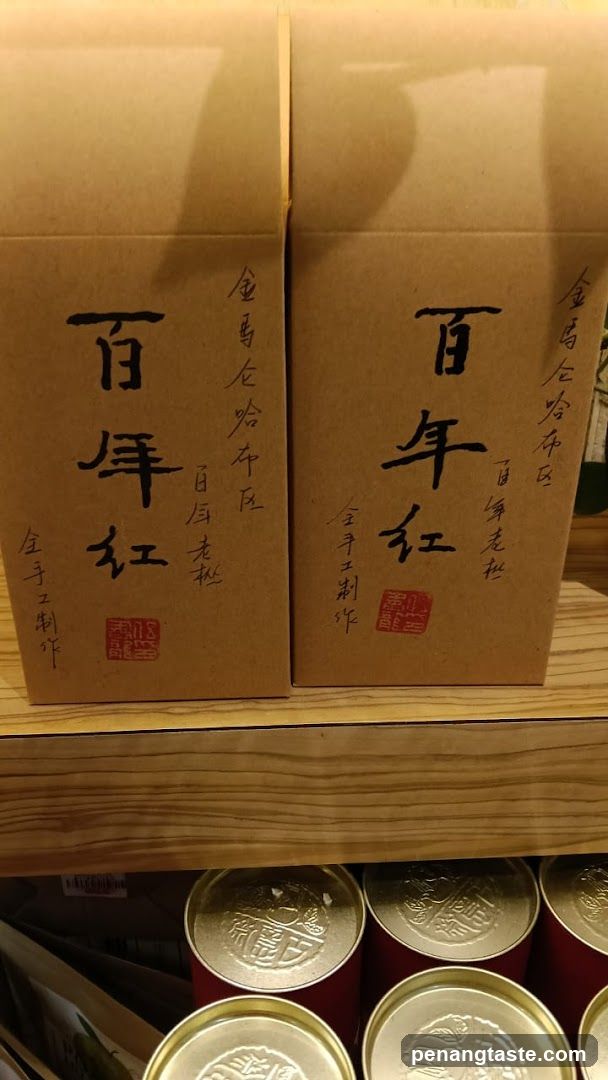 金马仑哈布区
百年老枞
百年红
全手工制作
金马仑哈布区
百年老枞
百年红
全手工制作
penangtaste.com